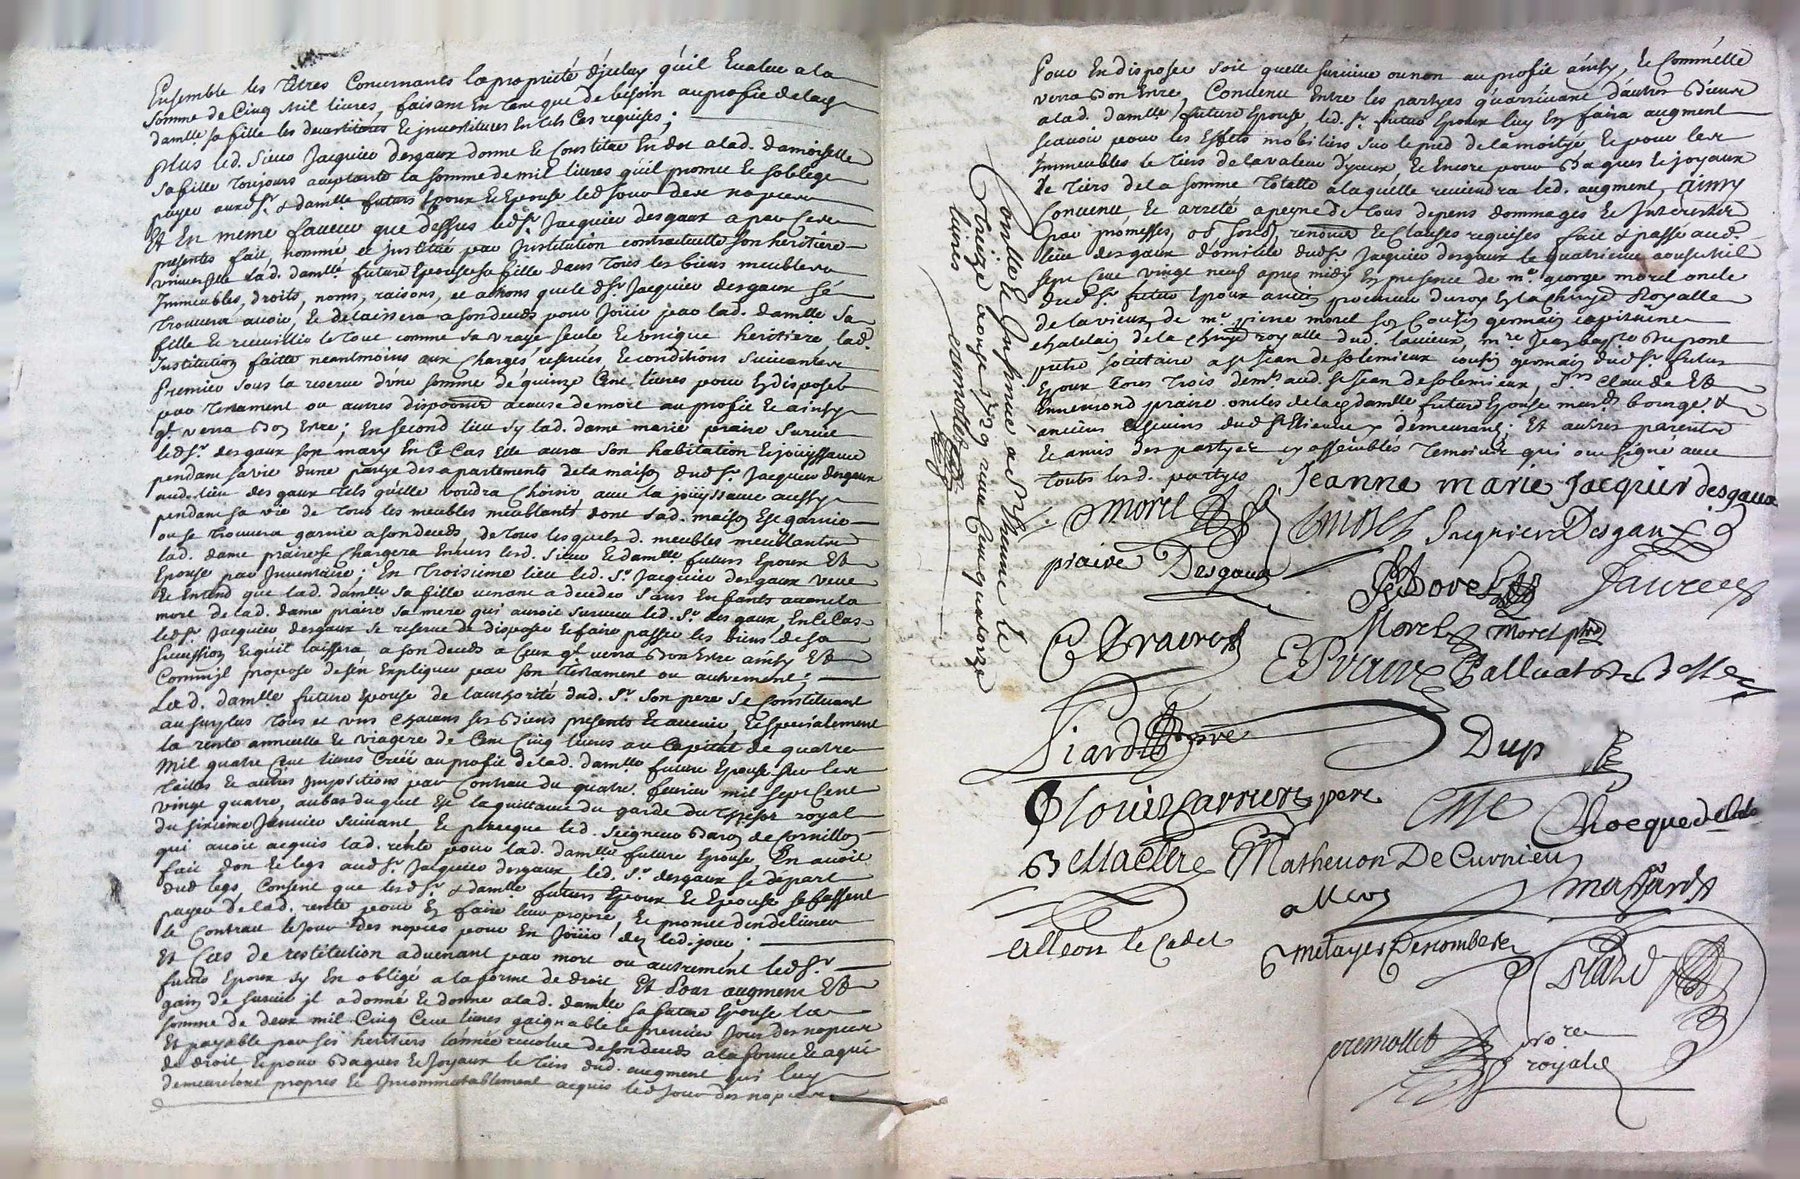 Ensemble les titres Concernants la propriété d'jceluy qu'il Evalue a la
somme de Cinq mil livres, faisant En tant que de besoin au profit de lad.
damlle sa fille les devestitures & jnvestitures En tels Cas requises;
plus led. Sieur Jacquier desgaux donne & Constitue En dot a lad. damoiselle
sa fille toujours acceptante la somme de mil livres qu'il promet & soblige
payer auxd. Sr. & damlle futurs Epoux & Epouse led. jour des nopces
Et En meme faveur que dessus led. Sr. Jacquier desgaux a par Ces
presentes fait, nommé, et jnstitué par jnstitution contractuelle son heritiere
universelle lad. damlle future Epouse sa fille dans tous les biens meubles
Immeubles, droits, noms, raisons, et actions que led. Sr. Jacquier desgaux se
trouvera avoir, & delaissera a son deceds pour jouir par lad. damlle sa
fille & recueillir le tout comme sa vraye seule & unique heritiere lad.
Institution faitte neantmoins aux Charges reserves & conditions suivantes
Premier sous la reserve d'une somme de quinze Cent livres pour En disposer
par testament ou autres disposition a cause de mort au profit & ainsy
ql. verra bon Estre; En second lieu sy lad. dame marie praire survit
led. Sr. desgaux son mary En Ce Cas Elle aura son habitation & jouyssance
pendant sa vie d'une partye des apartements de la maison dud. Sr. Jacquier desgaux
aud. lieu des gaux tels qu'elle voudra Choisir avec la jouyssance aussy
pendant sa vie de tous les meubles meublants dont lad. maison Est garnie
ou se trouvera garnie a son deceds, de tous lesquels d. meubles meublants
lad. dame praire se Chargera Envers lesd. Sieur & damlle futurs Epoux Et
Epouse par Inventaire; En troisieme lieu led. Sr. Jacquier desgaux veut
& Entend que lad. damlle sa fille venant a deceder sans Enfants avant la
mort de lad. dame praire sa mere qui auroit survecu led. Sr. des gaux, En Ce Cas
led. Sr. Jacquier desgaux se reserve de disposer & faire passer les biens de sa
succession & quil laissera a son deceds a Ceux ql. verra bon Estre ainsy Et
Comm'jl propose de s'en Expliquer par son testament ou autrement;
Lad. damlle future Epouse de l'authorité dud. Sr. son pere se Constituant
au surplus tous et uns chacuns ses biens presents & avenir, & specialement
la rente annuelle & viagere de Cent Cinq livres au Capital de quatre
mil quatre Cent livres Créée au profit de lad. damlle future Epouse sur les
tailles & autres Impositions par Contrat du quatre fevrier mil sept Cent
vingt quatre, au bas duquel Est la quittance du garde du tresor royal
du sixieme Janvier suivant, & parceque led. Seigneur Baron de Cornillon
qui avoit acquis lad. rente pour lad. damlle future Epouse, En avoit
fait don & legs aud. Sr. Jacquier desgaux, led. Sr. desgaux se depart
dud. legs, Consent que lesd. Sr. & damlle futurs Epoux & Epouse se fassent
payer de lad. rente pour En faire leur propre, & promet d'en delivrer
le Contrat le jour des nopces pour En joüir des led. jour:
Et Cas de restitution advenant par mort ou autrement led. Sr.
futur Epoux sy En oblige a la forme de droit, Et Pour augment Et
gain de survie jl a donné & donne a lad. damlle sa future Epouse la
somme de deux mil Cinq Cent livres gaignable le premier jour des nopces
Et payable par ses heritiers l'année revolue de son deceds a la forme &
de droit, & pour Bagues & joyaux le tiers dud. augment qui luy
demeureront propres & jncommutablement acquis led. jour des nopces
Pour En disposer soit quelle survive ou non au profit ainsy, & Comm'elle
verra bon Estre, Convenu Entre les partyes qu'arrivant d'autres Biens
a lad. damlle future Epouse, led. Sr. futur Epoux luy En faira augment
scavoir pour les Effets mobiliers sur le pied de la moityé & pour les
Immeubles le tiers de la valeur d'yceux, & Encore pour Bagues & joyaux
le tiers de la somme totalle a laquelle reviendra led. augment, Ainsy
Convenu, & arreté a peyne de tous depens dommages & Interests
par promesses, renonce & Clauses requises fait & passé aud.
lieu des gaux domicile dud. Sr. Jacquier desgaux le quatrieme aoust mil
sept Cent vingt neuf apres midy En presence de me. george morel oncle
dud. Sr. futur Epoux ancien procureur du roy En la chnye Royalle
de lavieux, de me. pierre morel son Cousin germain capitaine
chatelain de la chnye royalle dud. lavieux, mre Jean bapte Dupont
pretre societaire a st Jean de solemieux cousin germain dud. Sr. futur
Epoux tous trois demts aud. st Jean de solemieux, Srs Claude Et
Ennemond praire oncles de lad. damlle future Epouse mards bourgs. &
anciens Echevins dud. st Etienne y demeurants; Et autres parents
& amis des partyes y assemblés temoins qui ont signé avec
toutes lesd. partyes
Jeanne marie Jacquier desgaux
Morel
Jacquier Desgaux
praire Desgaux
Morel
Morel ptre
Palluat de Besset
Siardet
Dup
Louis Carrier pere
Chocque
Bellaclere Mathevon De Curnieu
alleon
Massardt
alleon le Cadet
metayer Descombes
Siard
cremollet
nore
royale
Controllé & Insinué a St Etienne le
treize aoust 1729 reçu Cinquante
livres
cremollet